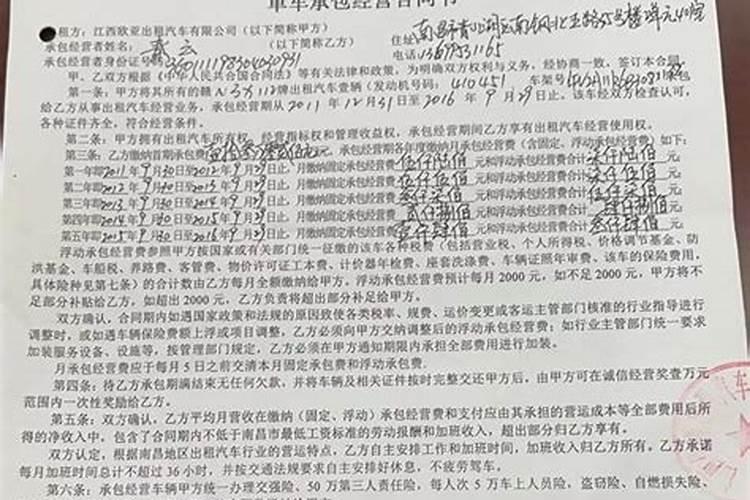 单车承包经营合同书
出租方：江西欧亚出租汽车有限公司（以下简称甲方）
承包经营者姓名： 云 （以下简称乙方） 住址：
承包经营者身份证号 电话
甲、乙双方根据《中华人民共和国合同法》等有关法律和政策，为明确双方权利与义务，经协商一致，签订本合同
第一条：甲方将其所有的赣A/ 牌出租汽车壹辆（发动机号码：410451 车架号
给乙方从事出租汽车经营业务，承包经营期从2011年12月31日至2016年9月29日止。该车经双方检查认可，
各种证件齐全，符合经营条件。
第二条：甲方拥有出租汽车所有权、经营指标权和管理收益权，承包经营期间乙方享有出租汽车经营使用权。
第三条：乙方缴纳首期承包费 元，承包经营期各年度缴纳月承包经营费（含固定、浮动承包经营费）如下：
第一年即2011年9月30日至2012年9月29日止，月缴纳固定承包经营费 伍仟陆佰 元和浮动承包经营费合计 柒仟陆佰 元；
第二年即2012年9月30日至2013年9月29日止，月缴纳固定承包经营费 元和浮动承包经营费合计 元；
第三年即2013年9月30日至2014年9月29日止，月缴纳固定承包经营费 元和浮动承包经营费合计 元；
第四年即2014年9月30日至2015年9月29日止，月缴纳固定承包经营费 贰仟捌佰 元和浮动承包经营费合计 肆仟捌佰 元；
第五年即2015年9月30日至2016年9月29日止，月缴纳固定承包经营费 壹仟肆佰 元和浮动承包经营费合计 叁仟肆佰 元；
浮动承包经营费参照甲方按国家或有关部门统一征缴的该车各种税费（包括营业税、个人所得税、价格调节基金、防
洪基金、车船税、养路费、客管费、物价许可证工本费、计价器年检费、座套洗涤费、车辆证照年审费、该车的保险费用，
具体险种见第七条）的合计数由乙方每月全额缴纳给甲方。浮动承包经营费预计每月2000元，如不足2000元，甲方将不
足部分补贴给乙方，如超出2000元，乙方负责将超出部分补足给甲方。
双方确认，合同期内如遇国家政策和法规的原因致使各类税率、规费、运价变更或客运主管部门核准的行业指导进行
调整时，或如遇车辆保险费额上浮或项目调整，乙方必须向甲方交纳调整后的浮动承包经营费；如行业主管部门统一要求
加装服务设备、设施等，按管理部门规定，乙方必须在甲方通知期限内承担全部费用进行加装。
月承包经营费应于每月5日之前交清本月固定承包费和浮动承包费.
第四条：待乙方承包期满结束无任何欠款，并将车辆及相关证件按时完整交还甲方后，由甲方可在诚信经营奖壹万元
范围内一次性奖励给乙方。
第五条：双方确认，乙方平均月营收在缴纳（固定、浮动）承包经营费和支付应由其承担的营运成本等全部费用后所
得的净收入中，包含了合同期内不低于南昌市最低工资标准的劳动报酬和加班收入，超出部分归乙方享有。
双方认定，根据南昌地区出租汽车行业的营运特点，乙方自主安排工作和加班时间，加班收入归乙方所有。乙方承诺
每月加班时间总计不超过36小时，并按交通法规要求自主安排好休息，不疲劳驾车。
第六条：承包经营车辆甲方统一办理交强险、50万第三人责任险，每人次5万车上人员险，盗窃险、自燃损失险、